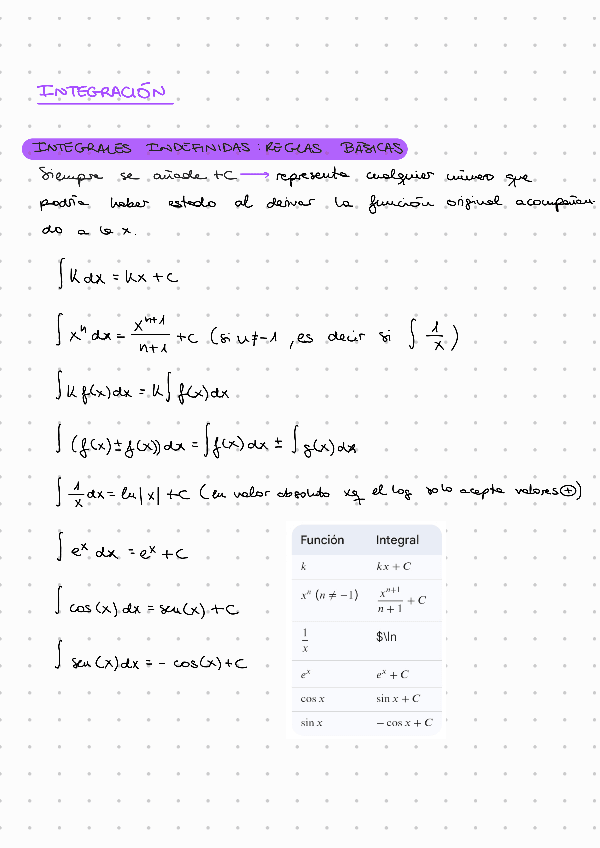 INTEGRACIÓN
INTEGRALES INDEFINIDAS: REGLAS BÁSICAS
Siempre se añade +C → representa cualquier número que
podría haber estado al derivar la función original acompañan
do a la x.
∫ K dx = kx + C
∫ xⁿ dx = xⁿ⁺¹/n+1 + C (si n ≠ -1, es decir si ∫ 1/x)
∫ K f(x) dx = K ∫ f(x) dx
∫ (f(x) ± f(x)) dx = ∫ f(x) dx ± ∫ g(x) dx
∫ 1/x dx = ln|x| + C (en valor absoluto xq el log solo acepta valores ⊕)
∫ eˣ dx = eˣ + C
∫ cos(x) dx = sen(x) + C
∫ sen(x) dx = - cos(x) + C
Función Integral
k kx + C
xⁿ (n ≠ −1) xⁿ⁺¹/n + 1 + C
1/x $\ln
eˣ eˣ + C
cos x sin x + C
sin x − cos x + C